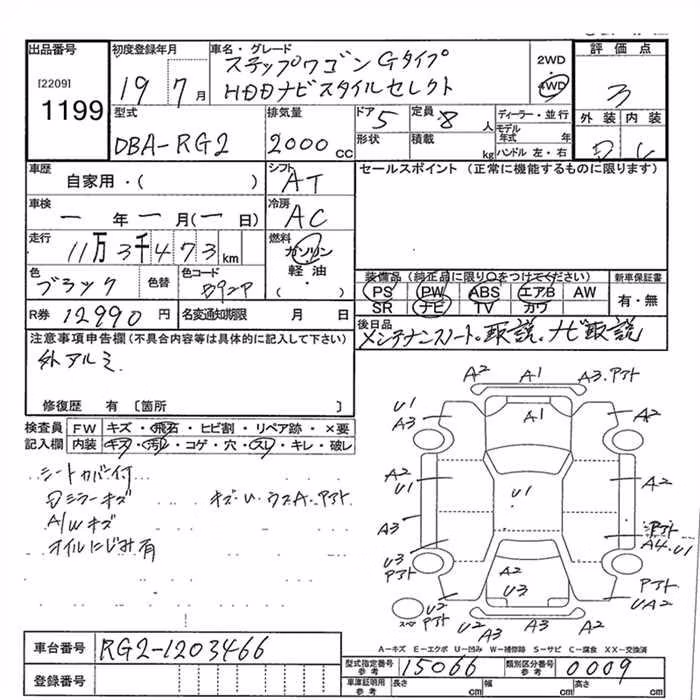 出品番号 初度登録年月 車名・グレード 評価点
[2209] 19 7月 ステップワゴン Gタイプ 2WD
1199 HDDナビスタイルセレクト 4WD 3
型式 排気量 ドア 定員 ディーラー・並行 外装 内装
DBA-RG2 2000cc 5 8人 モデル年式 年
形状 積載 kg ハンドル 左・右
車歴 シフト セールスポイント (正常に機能するものに限ります)
自家用・( ) AT
車検 冷房
一年一月(一日) AC
走行 燃料
11万3千473km ガソリン
色 色替 色コード 軽油 装備品(純正品に限り○をつけてください) 新車保証書
ブラック B92P ・( ) PS PW ABS エアB AW 有・無
SR ナビ TV カワ
R券 12990円 名変通知期限 月 日 後日品
メンテナンスノート。取説。ナビ取説
注意事項申告欄(不具合内容等は具体的に記入して下さい)
外アルミ
修復歴 有 〔箇所 〕
検査員 FW キズ・飛石・ヒビ割・リペア跡・×要
記入欄 内装 キズ・汚れ・コゲ・穴・スレ・キレ・破レ
A2 A1 A3.アト
U1 A1 A2
A3
A2 A2
U1 U1
A3
U3 A4.U1
アト A2 アト
U2 U3 UA2
アト
U2 A3 A2
A3
シートカバー付
Dミラーキズ キズ・U・ウスA・アト
A/Wキズ
オイルにじみ有
A-キズ E-エクボ U-凹み W-補修跡 S-サビ C-腐食 XX-交換済
車台番号 RG2-1203466
型式指定番号 参考 15066 類別区分番号 参考 0009
登録番号
車庫証明用 参考 長さ cm 幅 cm 高さ cm